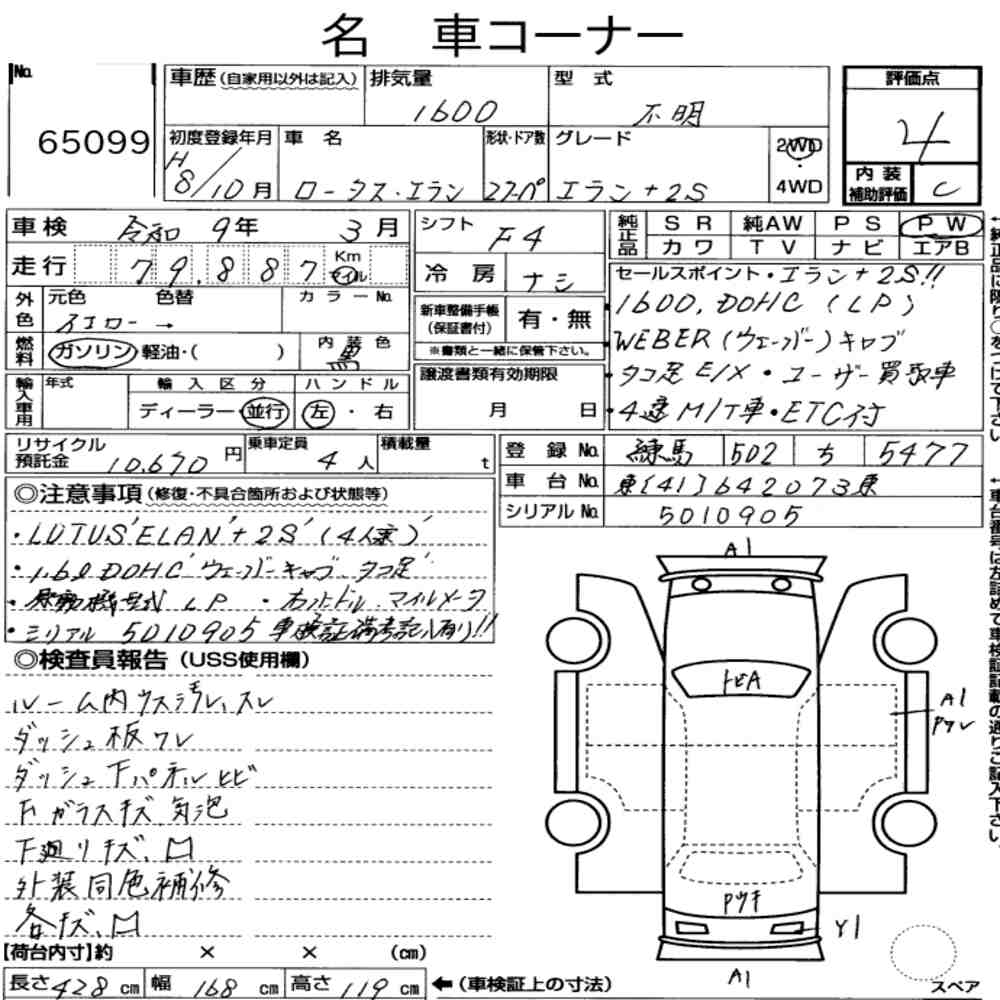 名 車コーナー
No. 65099
車歴(自家用以外は記入)
排気量 1600
型 式 不明
評価点 4
内装補助評価 C
初度登録年月 H 8/10月
車 名 ロータス・エラン
形状・ドア数 クーペ
グレード エラン+2S
2WD・4WD
車検 令和 9年 3月
走行 79,887 Km マイル
シフト F4
冷 房 ナシ
純正品 SR 純AW PS PW
カワ TV ナビ エアB
外色 元色 色替 カラーNo.
イエロー→
燃料 ガソリン 軽油・( )
内装色 黒
新車整備手帳(保証書付) 有・無
※書類と一緒に保管下さい。
セールスポイント・エラン+2S!!
・1600, DOHC (LP)
・WEBER(ウェーバー)キャブ
・タコ足 E/X・ユーザー買取車
・4速M/T車・ETC付
輸入車用 年式 輸入区分 ハンドル
ディーラー・並行 左・右
譲渡書類有効期限
月 日
リサイクル預託金 10,670円
乗車定員 4人
積載量 t
登録No. 練馬 502 ち 5477
車台No. 東[41]642073東
シリアルNo. 5010905
◎注意事項(修復・不具合箇所および状態等)
・LOTUS'ELAN'+2S'(4人乗)'
・1.6ℓDOHC'ウェーバーキャブ タコ足'
・原動機型式 LP ・右ハンドル、マイルメータ
・シリアル 5010905 車検証備考記入有り!!
◎検査員報告(USS使用欄)
ルーム内ウス汚レ、スレ
ダッシュ板ワレ
ダッシュ下パネルヒビ
Fガラスキズ 気泡
下廻りキズ、凹
外装同色補修
各キズ、凹
A1
トビA
A1
Pワレ
Pサキ
Y1
A1
スペア
【荷台内寸】約 × × (cm)
長さ428cm 幅 168cm 高さ119cm
←(車検証上の寸法)